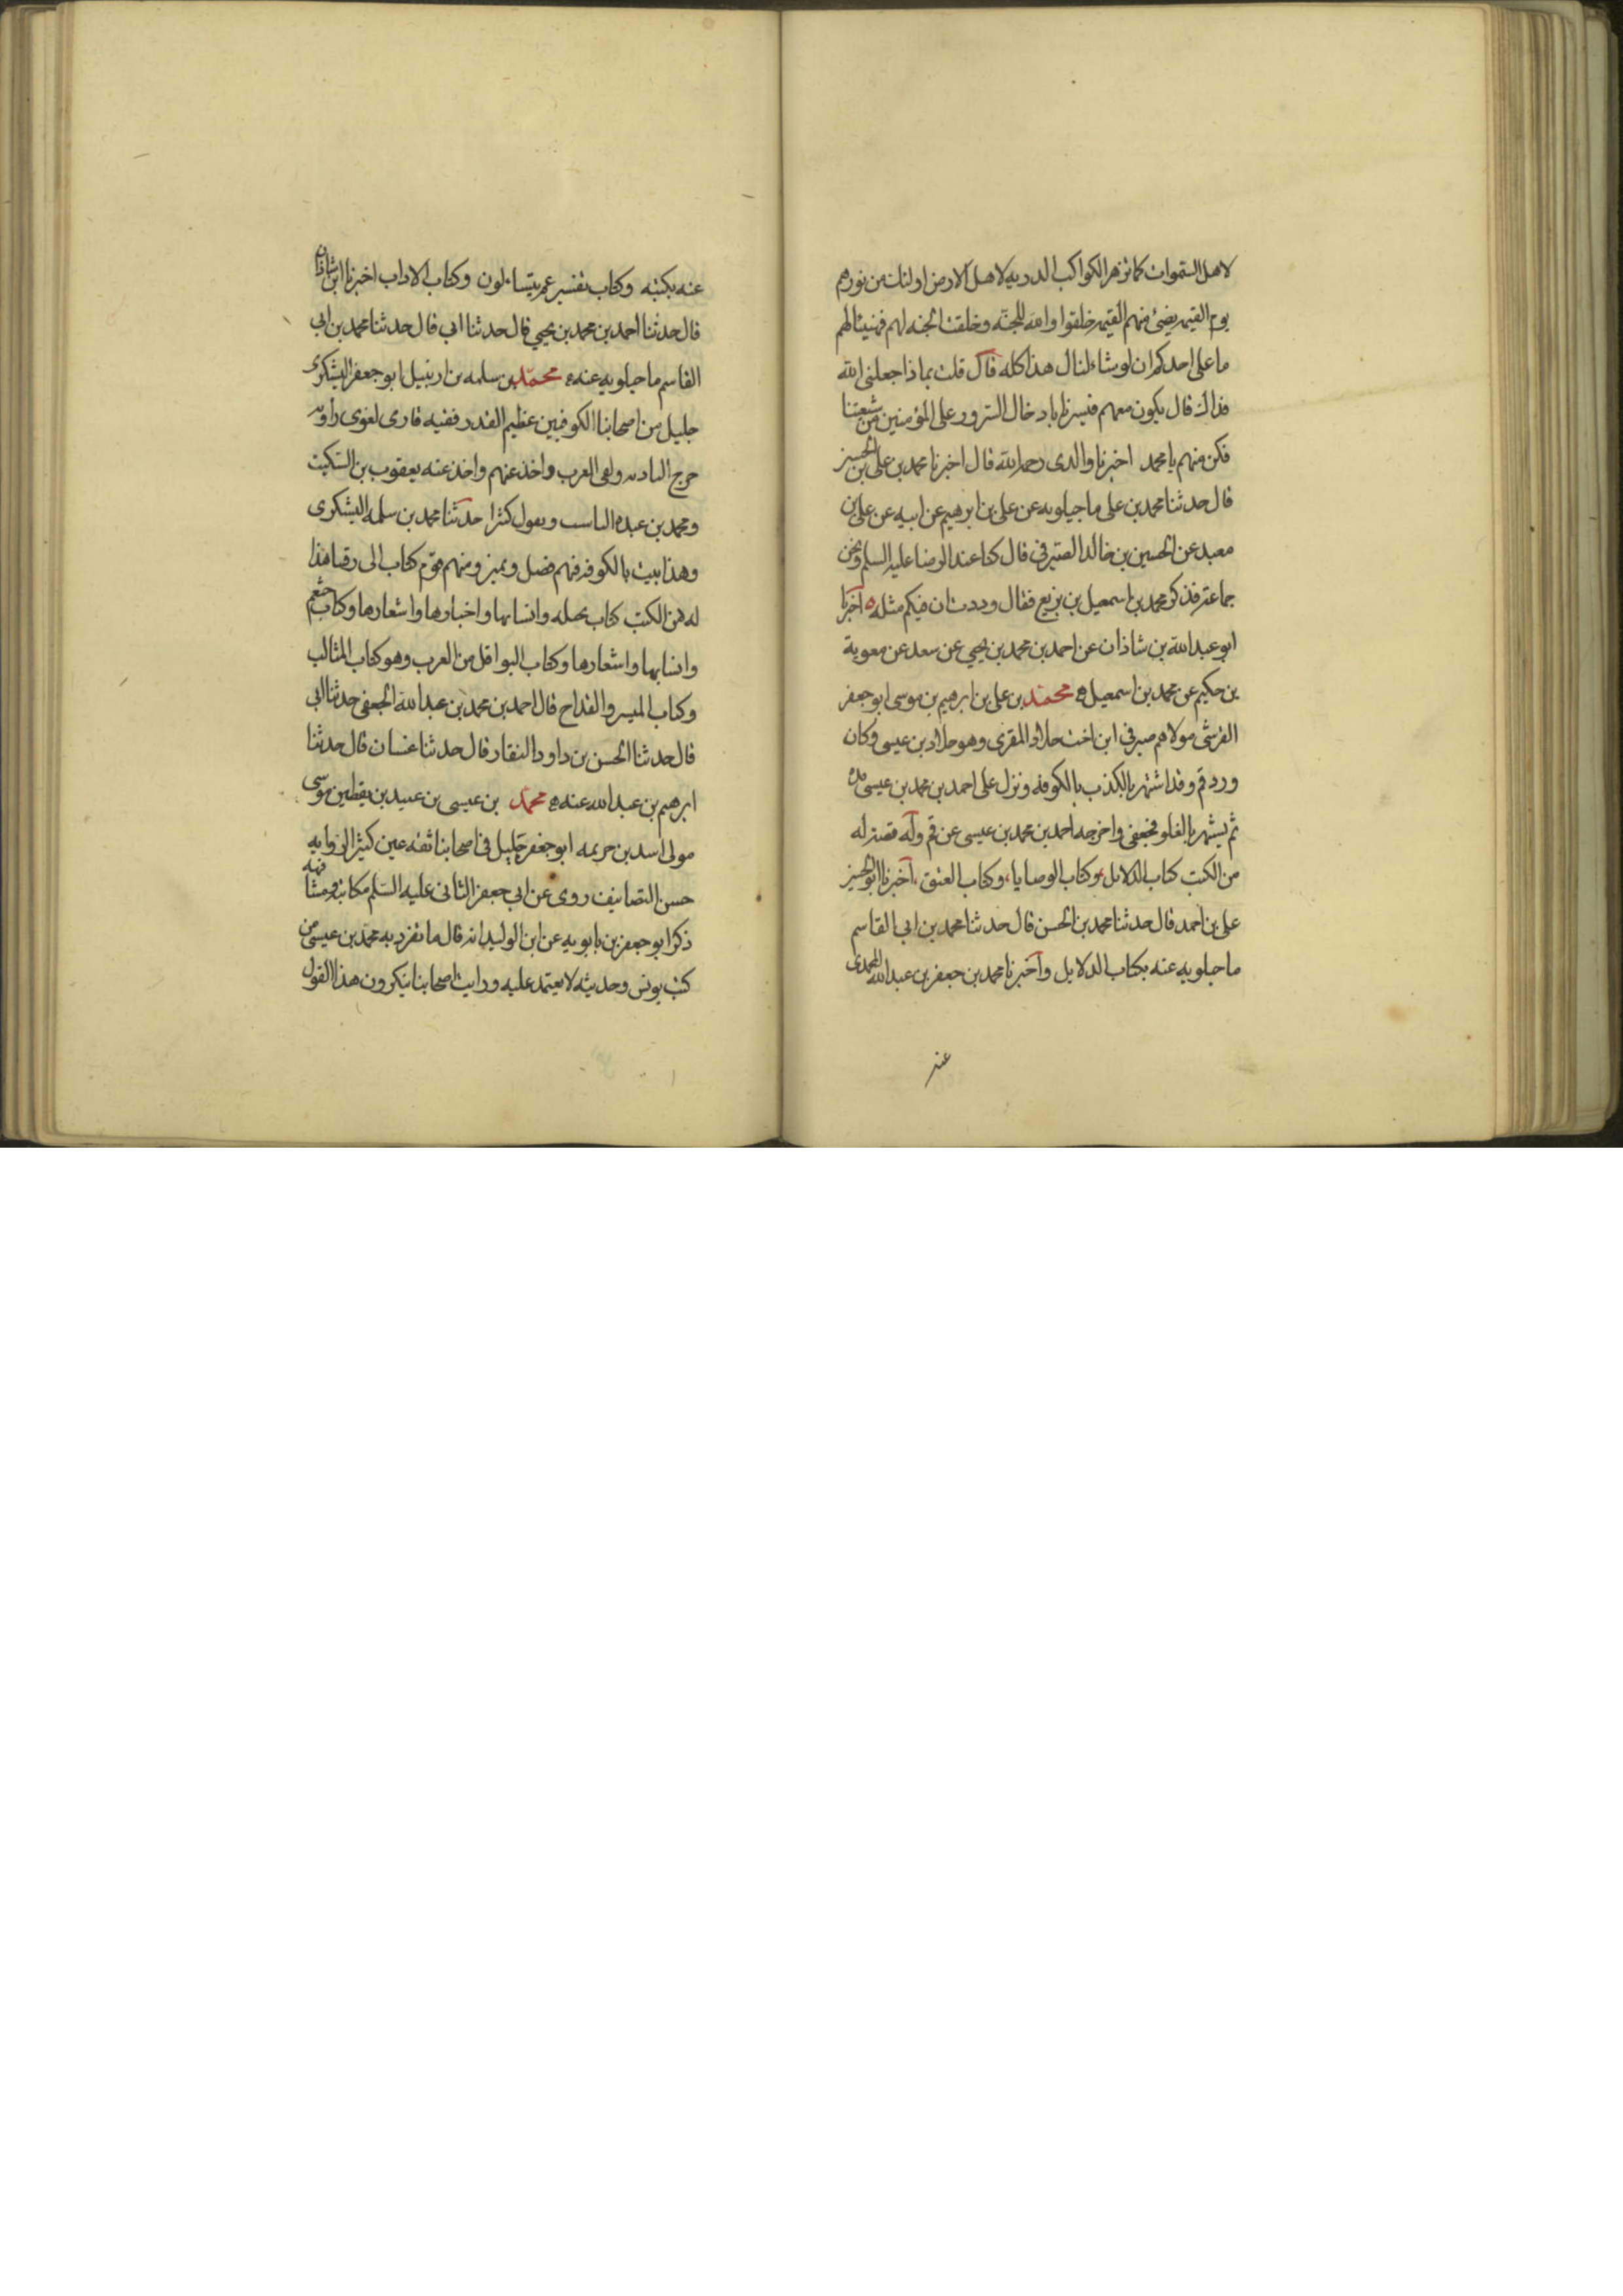 لاهل السموات كما تزهر الكواكب الدريه لاهل الارض اولئك من نورهم
يوم القيمه يضئ منهم القيمه خلقوا والله للجنه وخلقت الجنه لهم فهنيئا لهم
ما على احدكم ان لو شاء لنال هذا كله قال قلت بماذا جعلني الله
فداك قال يكون معهم فيسرنا بادخال السرور على المؤمنين من شيعتنا
فكن منهم يا محمد اخبرنا والدى رحمه الله قال اخبرنا محمد بن على بن الحسين
قال حدثنا محمد بن على ماجيلويه عن على بن ابرهيم عن ابيه عن على بن
معبد عن الحسين بن خالد الصيرفى قال كنا عند الرضا عليه السلم ونحن
جماعة فذكر محمد بن اسمعيل بن بزيع فقال وددت ان فيكم مثله اخبرنا
ابو عبد الله بن شاذان عن احمد بن محمد بن يحيى عن سعد عن معوية
بن حكيم عن محمد بن اسمعيل محمد بن على بن ابرهيم بن موسى ابو جعفر
القرشى مولاهم صيرفى ابن اخت خلاد المقرى وهو خلاد بن عيسى وكان
ورد قم وقد اشتهر بالكذب بالكوفه ونزل على احمد بن محمد بن عيسى مده
ثم يشهر بالغلو فجفى واخرجه احمد بن محمد بن عيسى عن قم وله قصة له
من الكتب كتاب الدلايل وكتاب الوصايا وكتاب العتق اخبرنا ابو الحسين
على بن احمد قال حدثنا محمد بن الحسن قال حدثنا محمد بن ابى القاسم
ماجيلويه عنه بكتاب الدلايل واخبرنا محمد بن جعفر بن عبد الله المحمدى
عنه
عنه بكتبه وكتاب تفسير عم يتساءلون وكتاب الاداب اخبرنا ابن شاذان
قال حدثنا احمد بن محمد بن يحيى قال حدثنا ابى قال حدثنا محمد بن ابى
القاسم ماجيلويه عنه محمد بن سلمه بن ارتبيل ابو جعفر اليشكرى
جليل من اصحابنا الكوفيين عظيم القدر فقيه قارى لغوى راويه
خرج الباديه ولقى العرب واخذ عنهم واخذ عنه يعقوب بن السكيت
ومحمد بن عبده الناسب ويقول كثيرا حدثنا محمد بن سلمه اليشكرى
وهذا بيت بالكوفه فيهم فضل وتميز ومنهم قوم كتاب الى وقتنا هذا
له من الكتب كتاب بجيله وانسابها واخبارها واشعارها وكتاب خثعم
وانسابها واشعارها وكتاب النواقل من العرب وهو كتاب المثالب
وكتاب الميسر والقداح قال احمد بن محمد بن عبد الله الجعفى حدثنا ابى
قال حدثنا الحسن بن داود النقار قال حدثنا غسان قال حدثنا
ابرهيم بن عبد الله عنه محمد بن عيسى بن عبيد بن يقطين موسى
مولى اسد بن خزيمه ابو جعفر جليل فى اصحابنا ثقه عين كثير الروايه
حسن التصانيف روى عن ابى جعفر الثانى عليه السلم مكاتبة ومشافهه
ذكر ابو جعفر بن بابويه عن ابن الوليد انه قال ما تفرد به محمد بن عيسى من
كتب يونس وحديثه لا يعتمد عليه ورايت اصحابنا ينكرون هذا القول